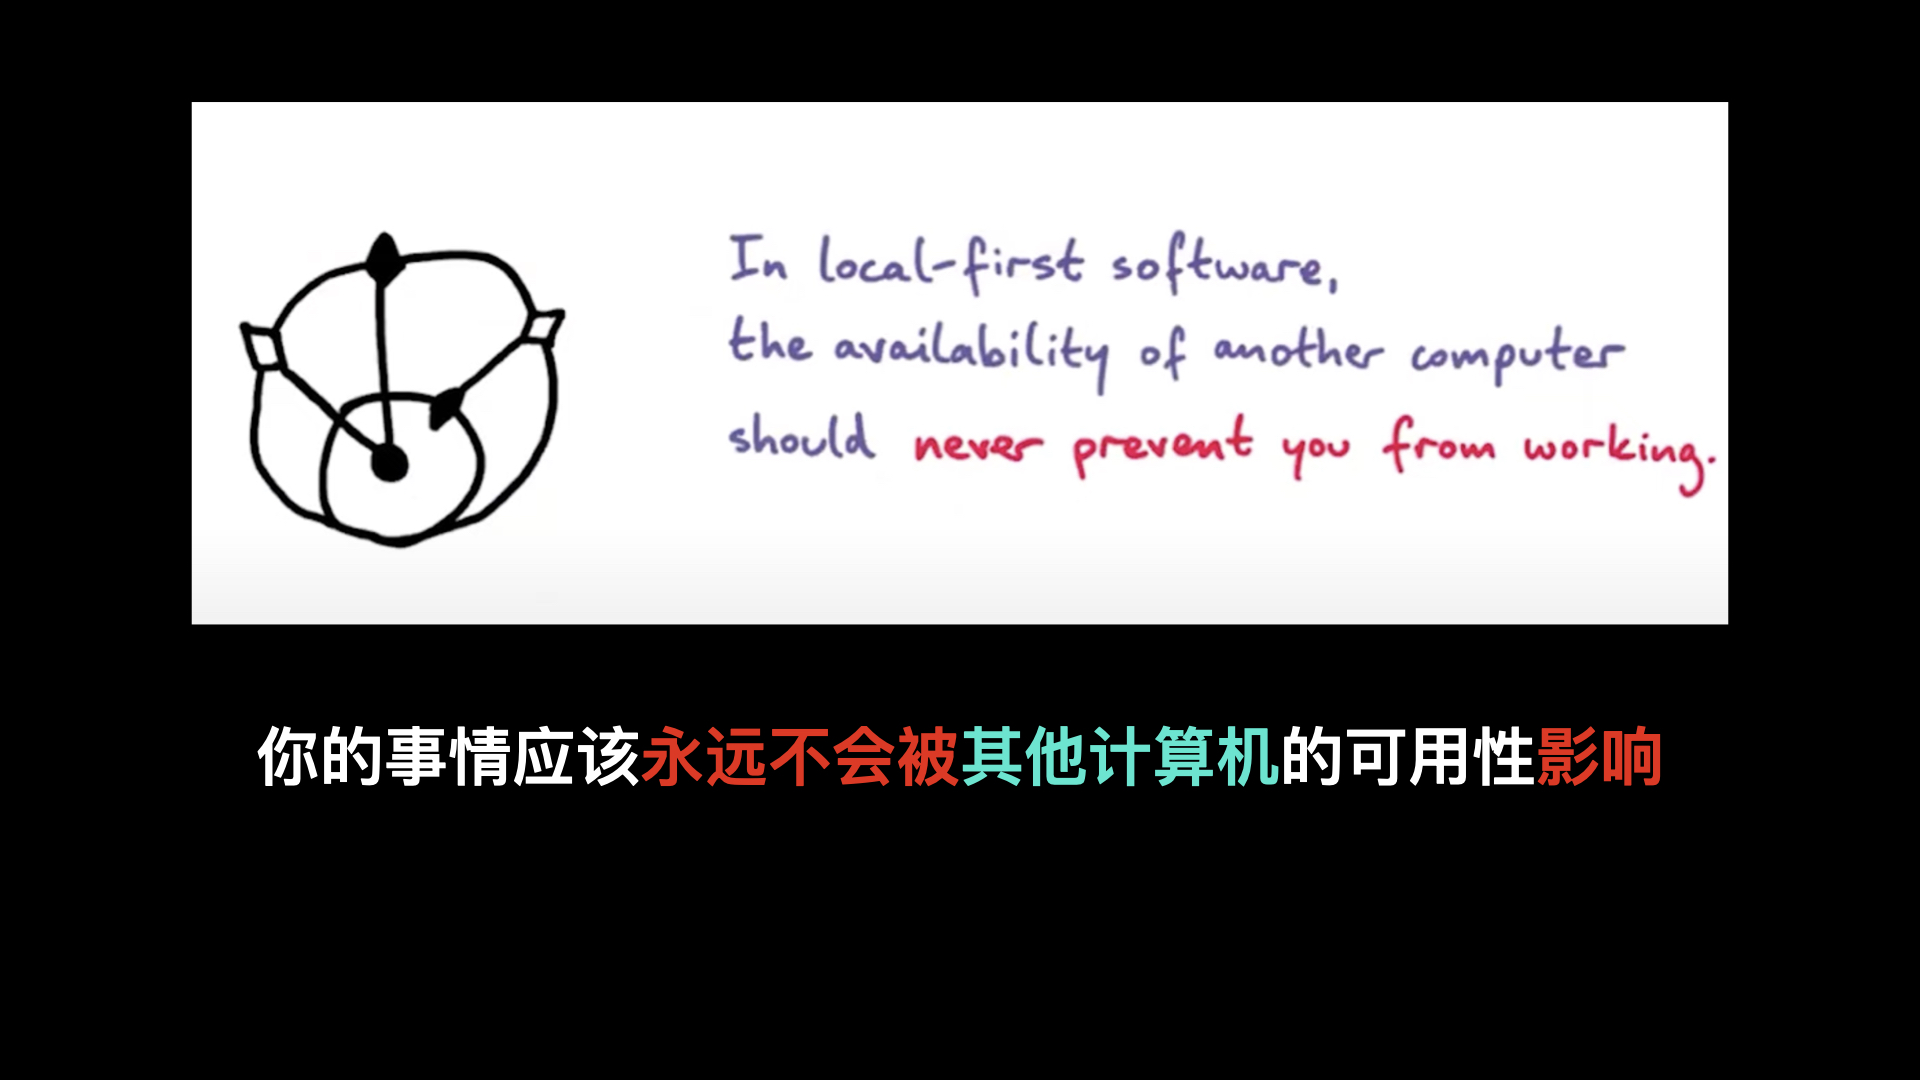 In local-first software,
the availability of another computer
should never prevent you from working.
你的事情应该永远不会被其他计算机的可用性影响